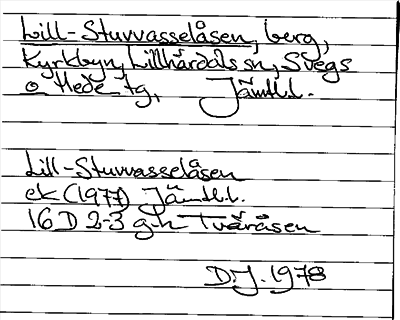 Lill-Stuvvasselåsen, berg,
Kyrkbyn, Lillhärdals sn, Svegs
o Hede tg, Jämtl.l.
Lill-Stuvvasselåsen
ek (1977) Jämtl.l.
16 D 2-3 g-h Tvåråsen
D.J. 1978